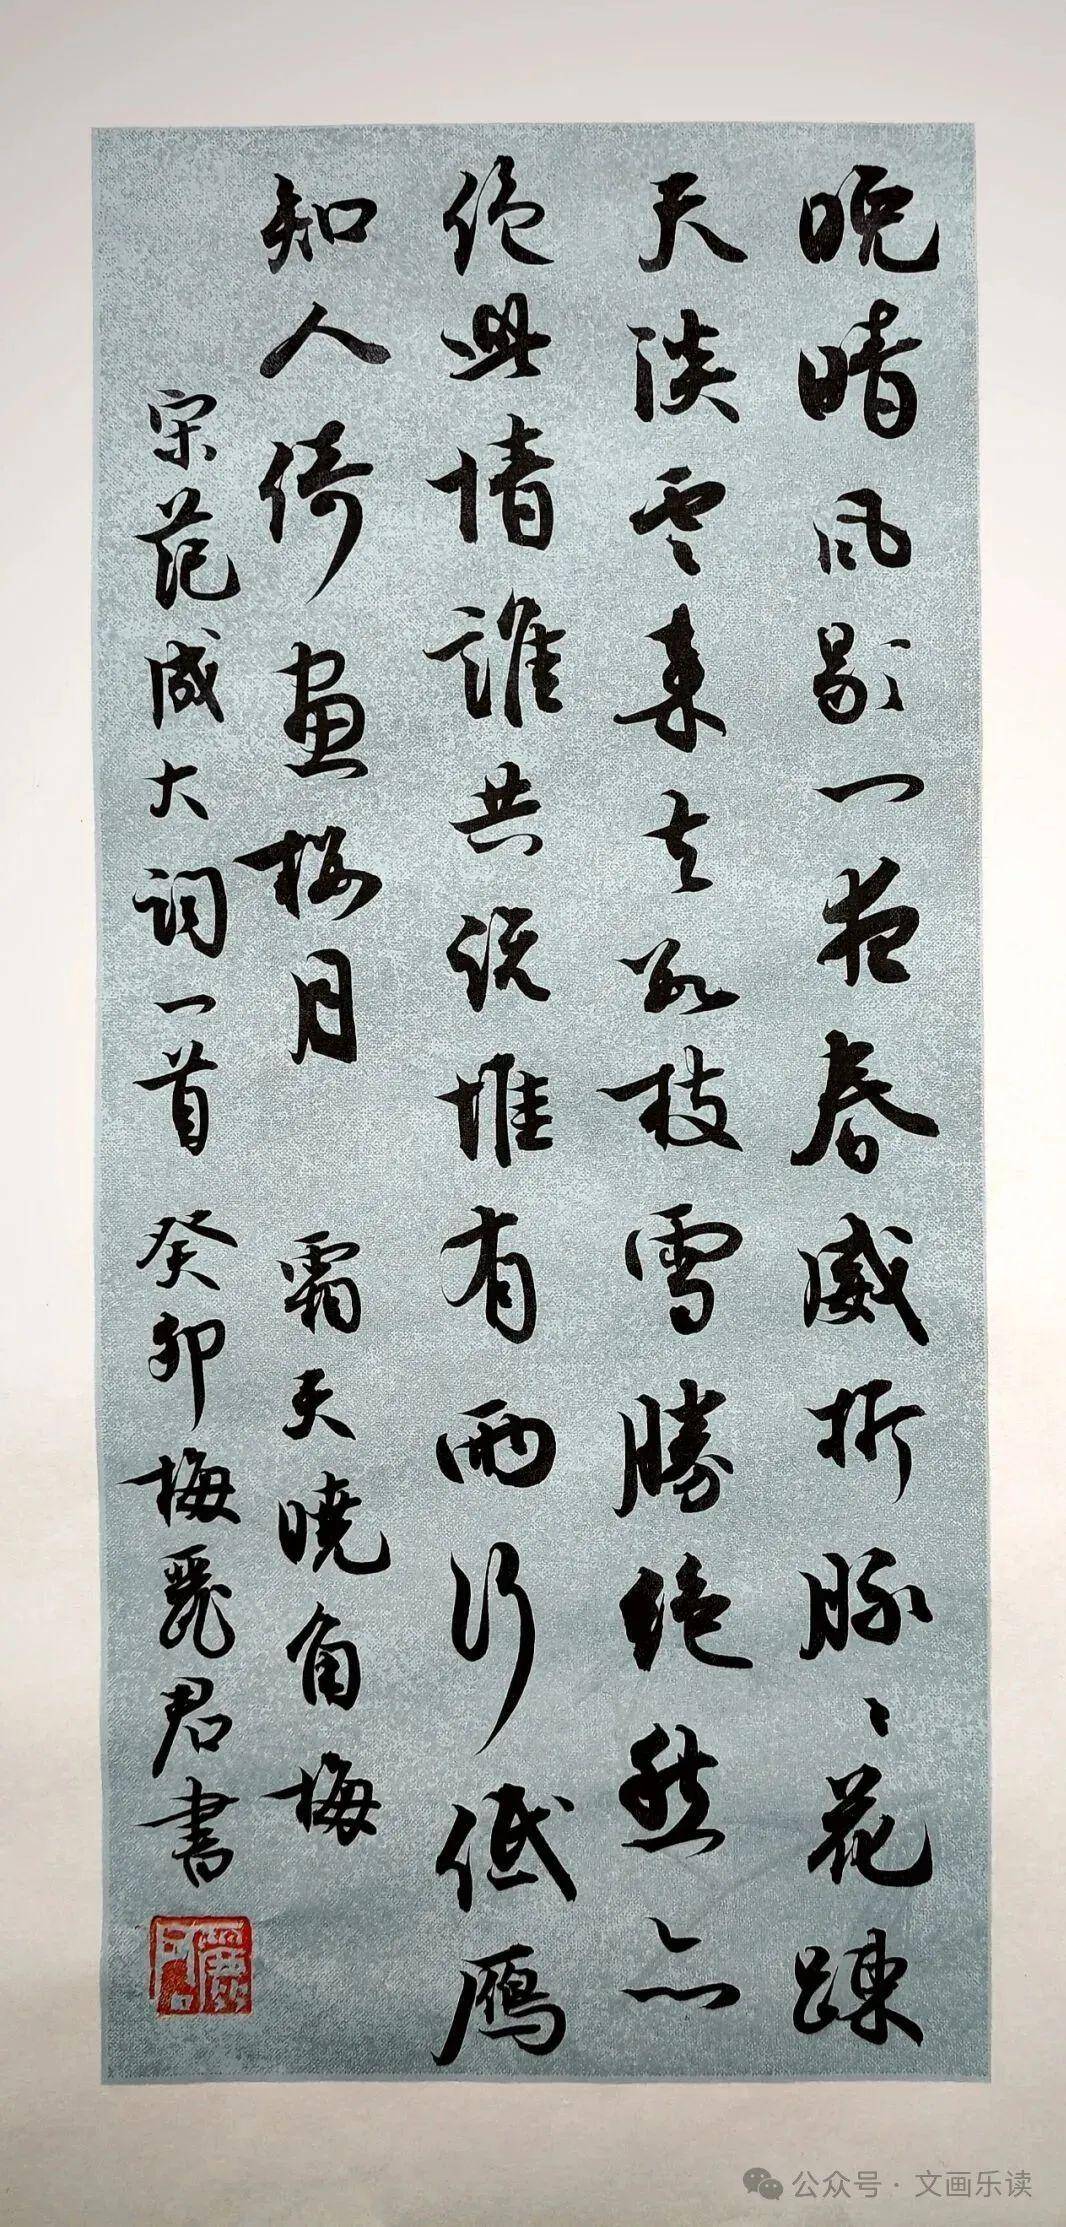 晚晴风歇一夜春威折脉〻花疎
天淡云来去数枝雪勝绝然亦
绝此情誰共说惟有两行低鴈
知人倚画楼月 霜天曉角梅
宋范成大词一首 癸卯梅麗君書
麗君
公众号·文画乐读